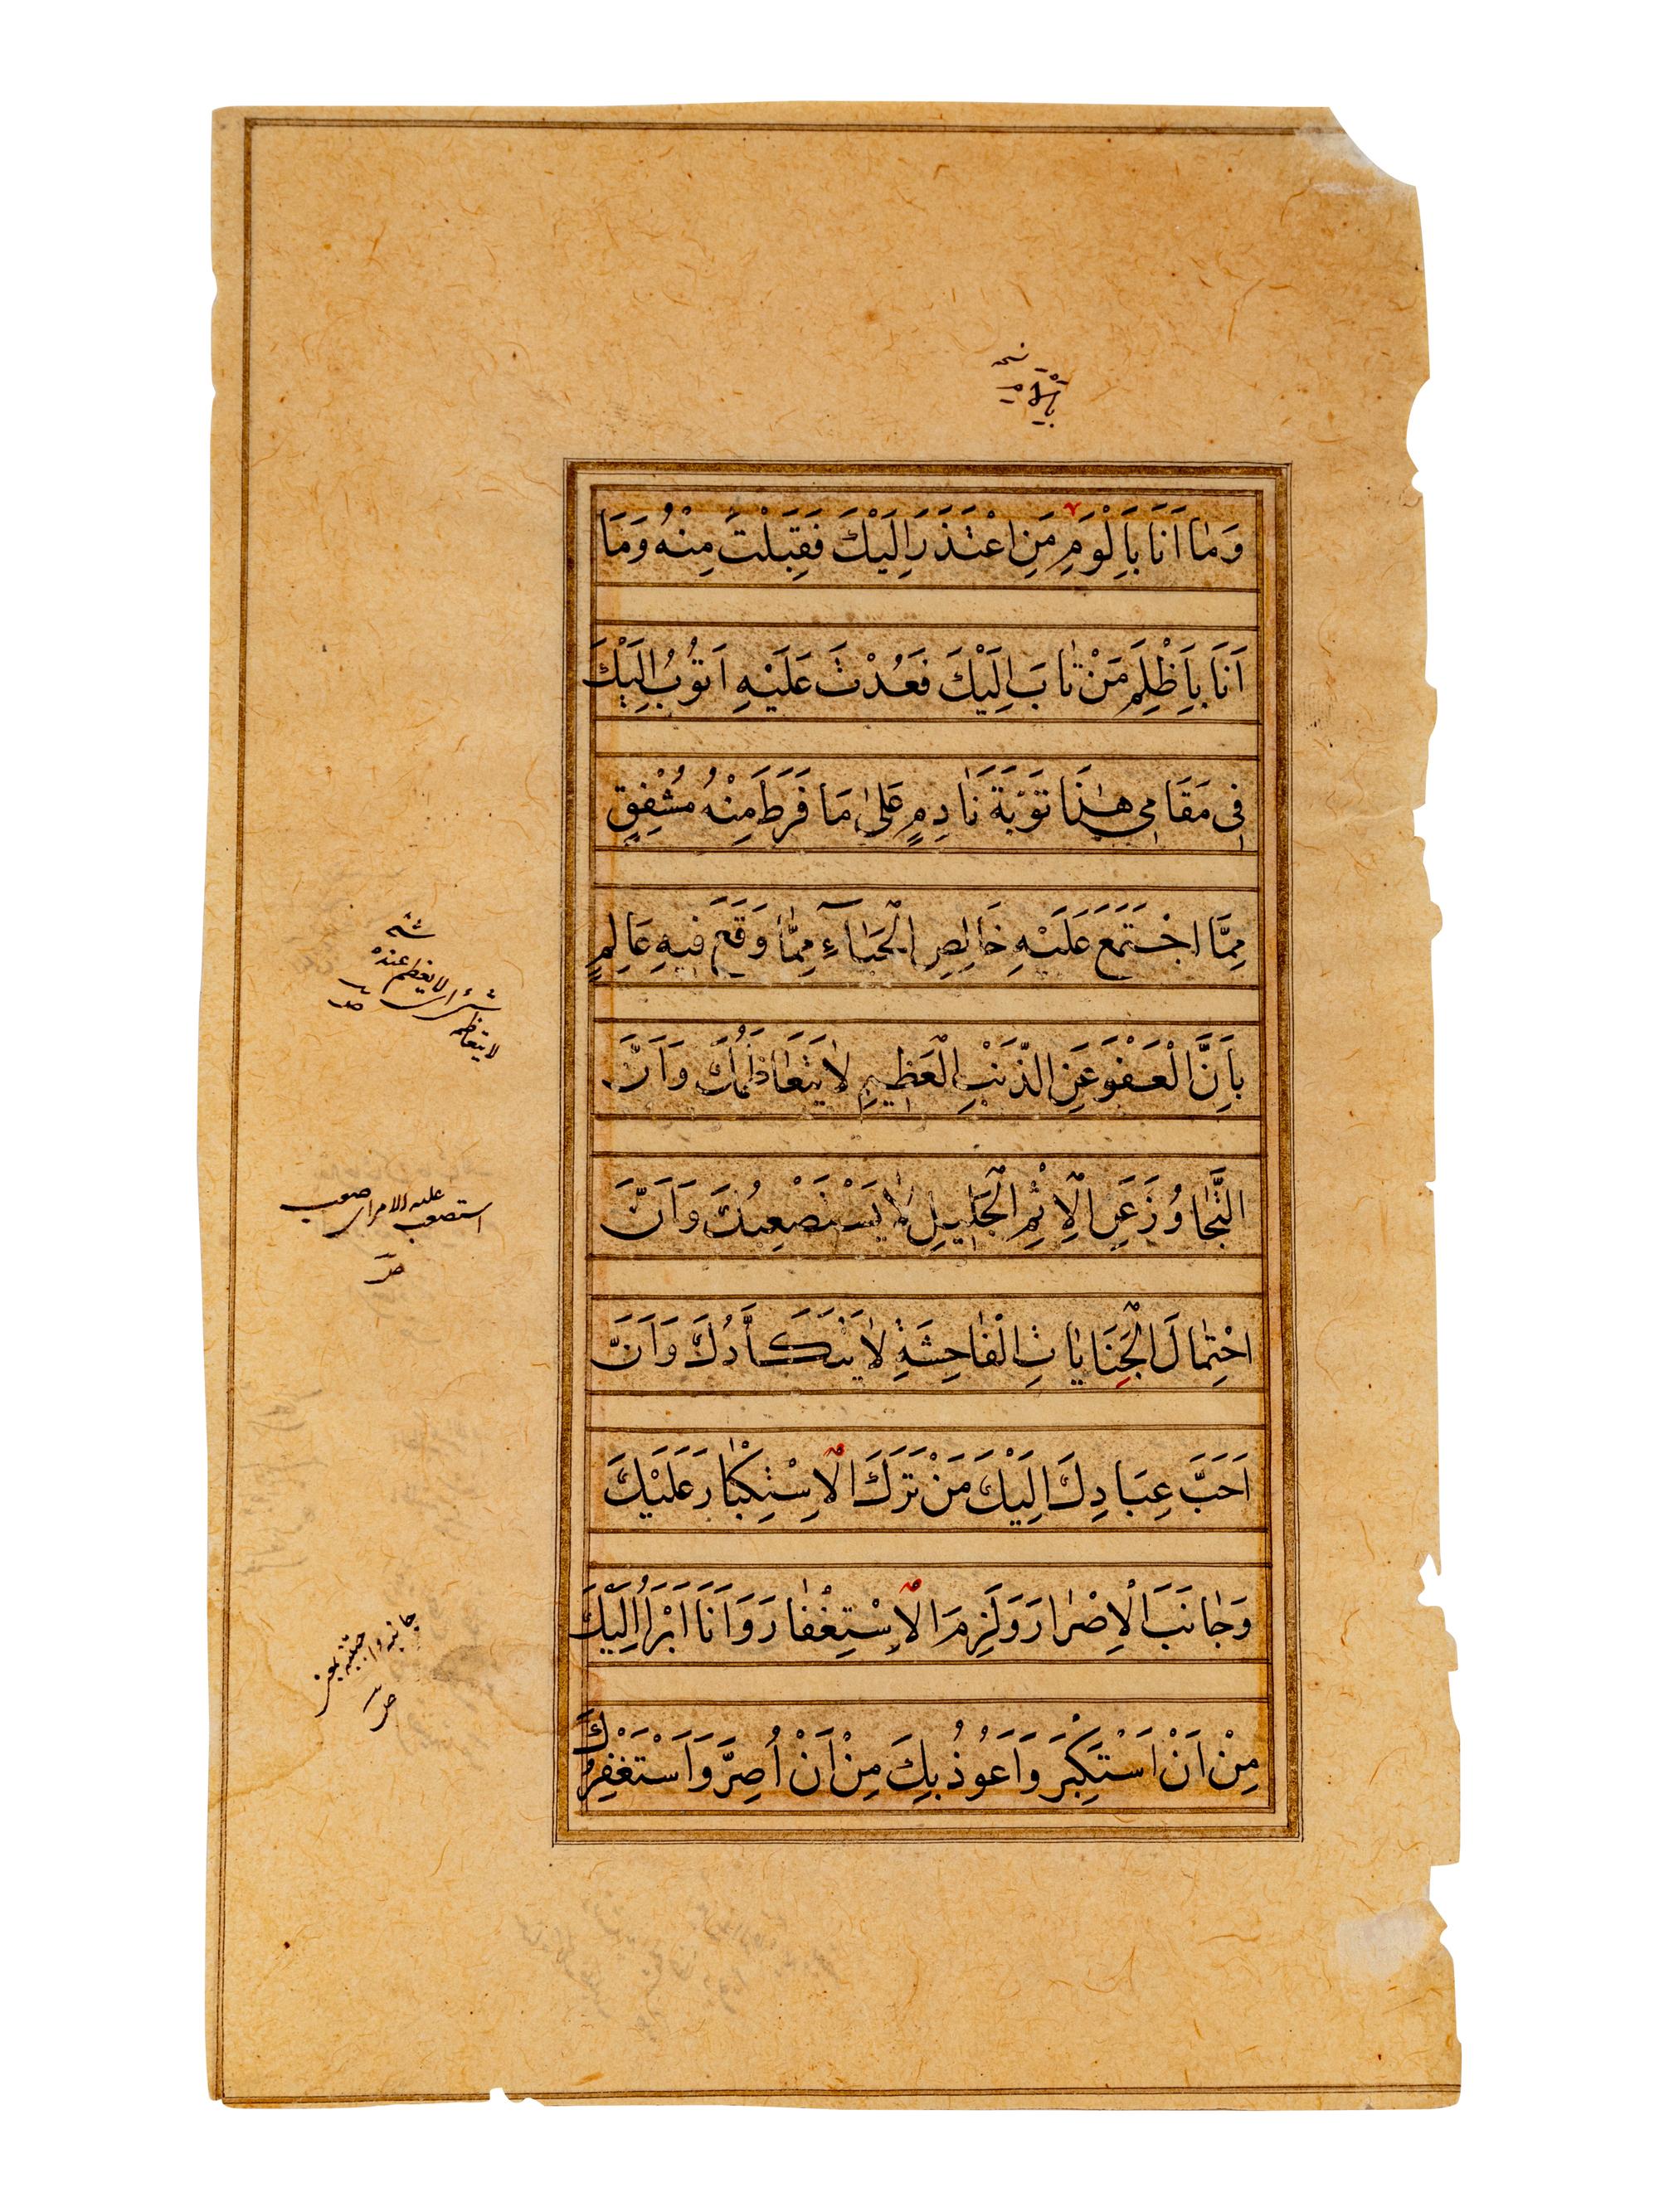 نسخه
بِأَلْأَمِ
وَمٰا اَنَا بِاَلْوَمِ مَنِ اعْتَذَرَ اِلَيْكَ فَقَبِلْتَ مِنْهُ وَمَا
اَنَا بِاَظْلَمِ مَنْ تٰابَ اِلَيْكَ فَعُدْتَ عَلَيْهِ اَتُوبُ اِلَيْكَ
فِى مَقَامِى هٰذَا تَوْبَةَ نَادِمٍ عَلىٰ مَا فَرَطَ مِنْهُ مُشْفِقٍ
مِمَّا اجْتَمَعَ عَلَيْهِ خَالِصِ الْحَيٰاۤءِ مِمّٰا وَقَعَ فيهِ عَالِمٍ
بِاَنَّ الْعَفْوَ عَنِ الذَّنْبِ الْعَظِيمِ لٰا يَتَعَاظَمُكَ وَاَنَّ
التَّجٰاوُزَ عَنِ الْاِثْمِ الْجَليلِ لٰا يَسْتَصْعِبُكَ وَاَنَّ
احْتِمٰالَ الْجِنَايٰاتِ الْفٰاحِشَةِ لٰا يَتَكَأَّدُكَ وَاَنَّ
اَحَبَّ عِبَادِكَ اِلَيْكَ مَنْ تَرَكَ الْاِسْتِكْبٰارَ عَلَيْكَ
وَجٰانَبَ الْاِصْرٰارَ وَلَزِمَ الْاِسْتِغْفٰارَ وَاَنَا اَبْرَأُ اِلَيْكَ
مِنْ اَنْ اَسْتَكْبِرَ وَاَعُوذُ بِكَ مِنْ اَنْ اُصِرَّ وَاَسْتَغْفِرُكَ
لا يتعاظمه
شىء اى لا يعظم عنده
شىء
استصعب عليه الامر اى صعب
صر
جانبه واجتنبه بمعنى
صر